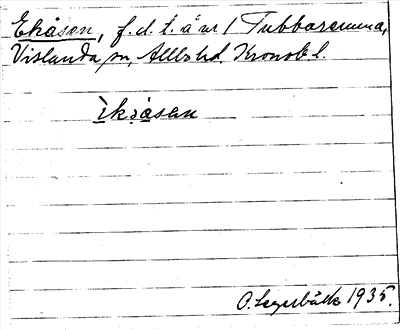 Ekåsen, f.d. t. å nr 1 Tubbaremma,
Vislanda sn, Allbo hd Kronob. l.
ìkåsan
1935.